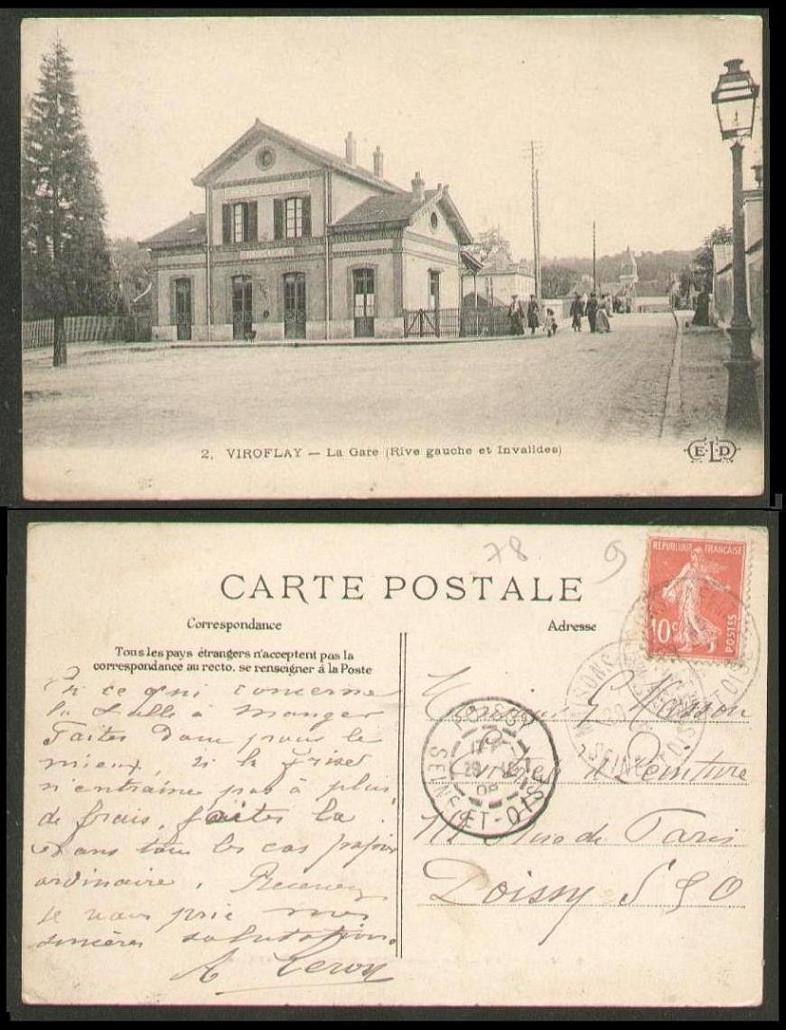 2. VIROFLAY — La Gare (Rive gauche et Invalides)
E·L·D
78
9
CARTE POSTALE
Correspondance
Adresse
Tous les pays étrangers n'acceptent pas la
correspondance au recto. se renseigner à la Poste
REPUBLIQUE FRANÇAISE
10c
POSTES
MAISONS
SEINE ET OISE
POISSY
SEINE-ET-OISE
En ce qui concerne
la Salle à manger
Faites donc pour le
mieux, si la frise
n'entraine pas à plus
de frais, faites la.
Dans tous les cas papier
ordinaire. Recevez
je vous prie mes
sincères salutations.
Monsieur G. Masson
de Peinture
Rue de Paris
Poissy S & O